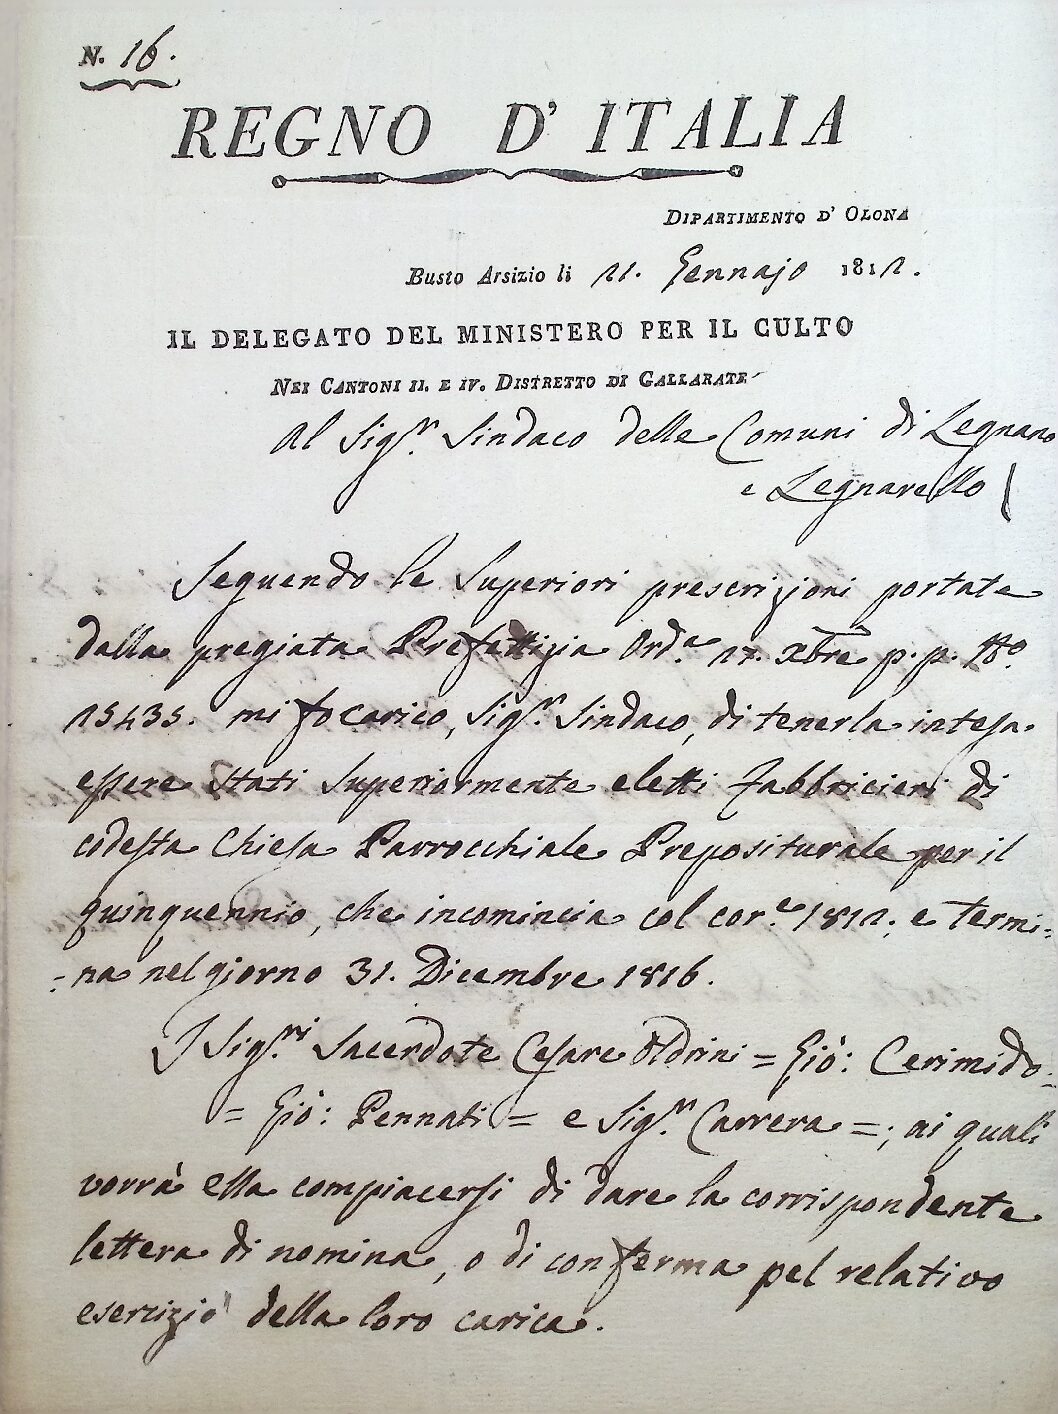 N. 16.
REGNO D' ITALIA
DIPARTIMENTO D' OLONA
Busto Arsizio li 11. Gennajo 1812.
IL DELEGATO DEL MINISTERO PER IL CULTO
NEI CANTONI II. E IV. DISTRETTO DI GALLARATE
Al Sig.r Sindaco delle Comuni di Legnano
e Legnarello
Seguendo le Superiori prescrizioni portate
dalla pregiata Prefettizia Ord.a 17. Xbre p. p. N.o
15435. mi fo carico, Sig.r Sindaco, di tenerla intesa
essere stati Superiormente eletti Fabbricieri di
codesta Chiesa Parrocchiale Prepositurale per il
quinquennio, che incomincia col cor.e 1812. e termi=
=na nel giorno 31. Dicembre 1816.
I Sig.ri Sacerdote Cesare Oldrini = Giò: Cerimido
= Giò: Pennati = e Sig.r Carrera =; ai quali
vorrà ella compiacersi di dare la corrispondente
lettera di nomina, o di conferma pel relativo
esercizio della loro carica.